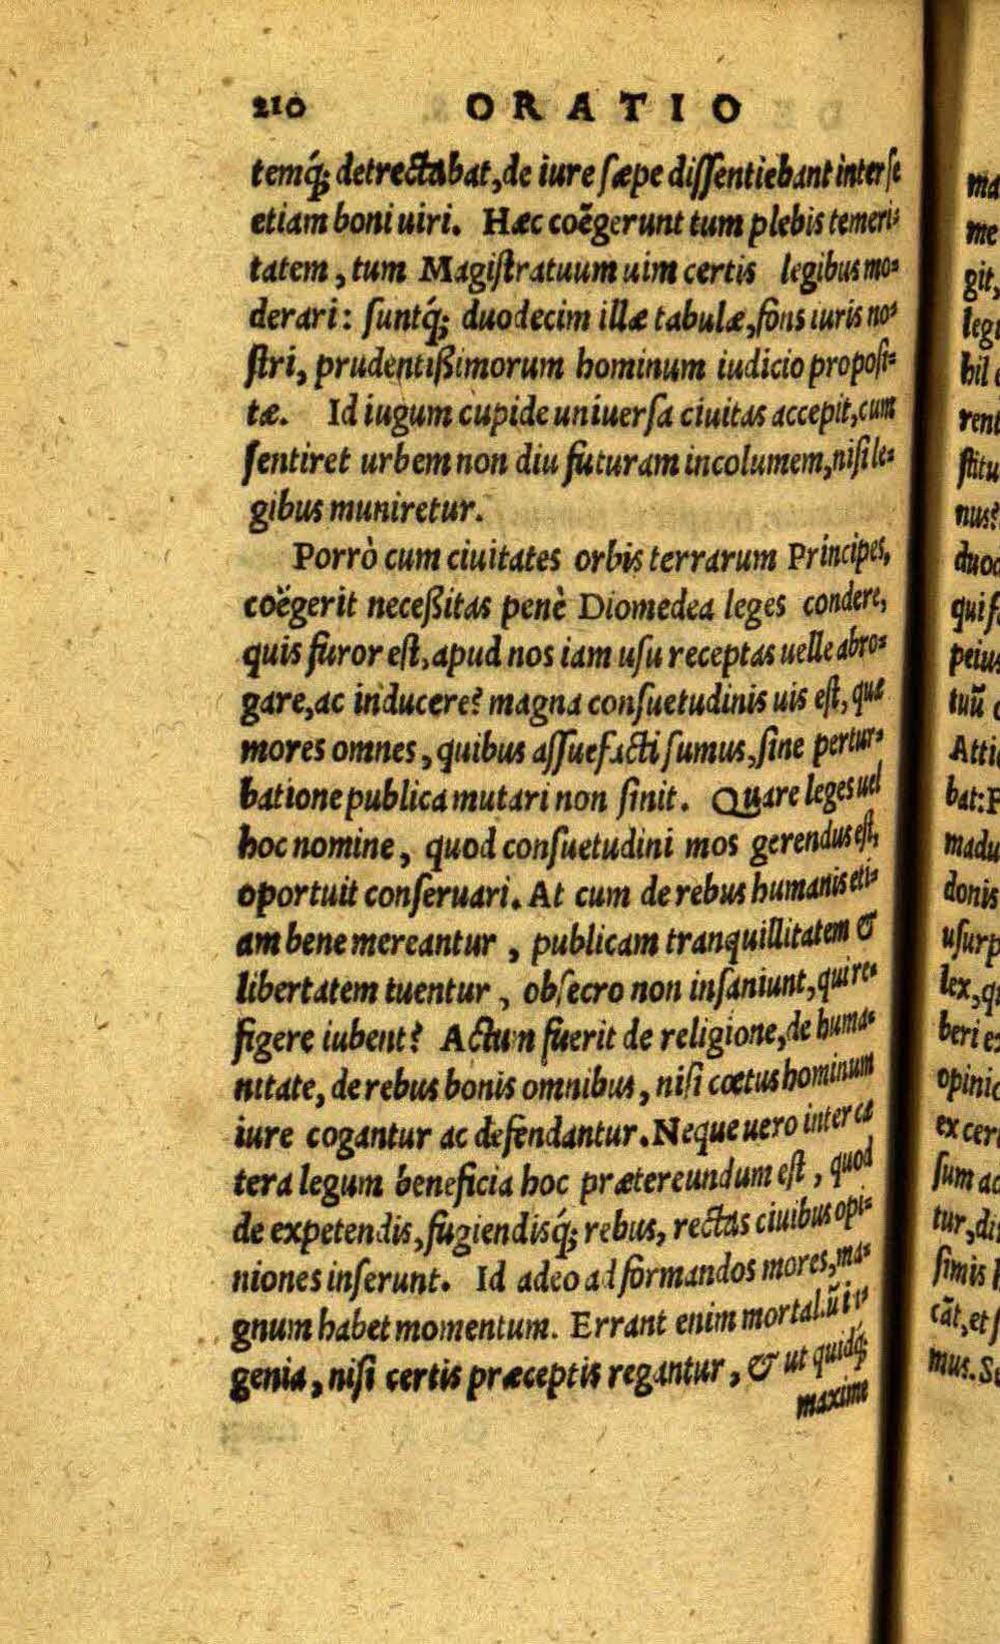 210 ORATIO
temq́; detrectabat, de iure sæpe dissentiebant inter se
etiam boni uiri. Hæc coëgerunt tum plebis temeri-
tatem, tum Magistratuum uim certis legibus mo-
derari: suntq́; duodecim illæ tabulæ, fons iuris no-
stri, prudentißimorum hominum iudicio proposi-
tæ. Id iugum cupide uniuersa ciuitas accepit, cum
sentiret urbem non diu futuram incolumem, nisi le-
gibus muniretur.
Porrò cum ciuitates orbis terrarum Principes,
coëgerit neceßitas penè Diomedea leges condere,
quis furor est, apud nos iam usu receptas uelle abro-
gare, ac inducere? magna consuetudinis uis est, quæ
mores omnes, quibus assuefacti sumus, sine pertur-
batione publica mutari non sinit. Quare leges uel
hoc nomine, quod consuetudini mos gerendus est,
oportuit conseruari. At cum de rebus humanis eti-
am bene mereantur, publicam tranquillitatem &
libertatem tuentur, obsecro non insaniunt, qui re-
figere iubent? Actum fuerit de religione, de huma-
nitate, de rebus bonis omnibus, nisi cœtus hominum
iure cogantur ac defendantur. Neque uero inter cæ
tera legum beneficia hoc prætereundum est, quod
de expetendis, fugiendisq́; rebus, rectas ciuibus opi-
niones inserunt. Id adeo ad formandos mores, ma-
gnum habet momentum. Errant enim mortaliũ in-
genia, nisi certis præceptis regantur, & ut quidq;
maxime
ma
me
git,
leg
bil
rent
stitu
nus?
duod
qui s
peius
tuũ
Atti
bat: P
madu
donis
usurp
lex, q
beri e
opinio
ex cer
sum ac
tur, di
simis
cāt, et s
mus. S